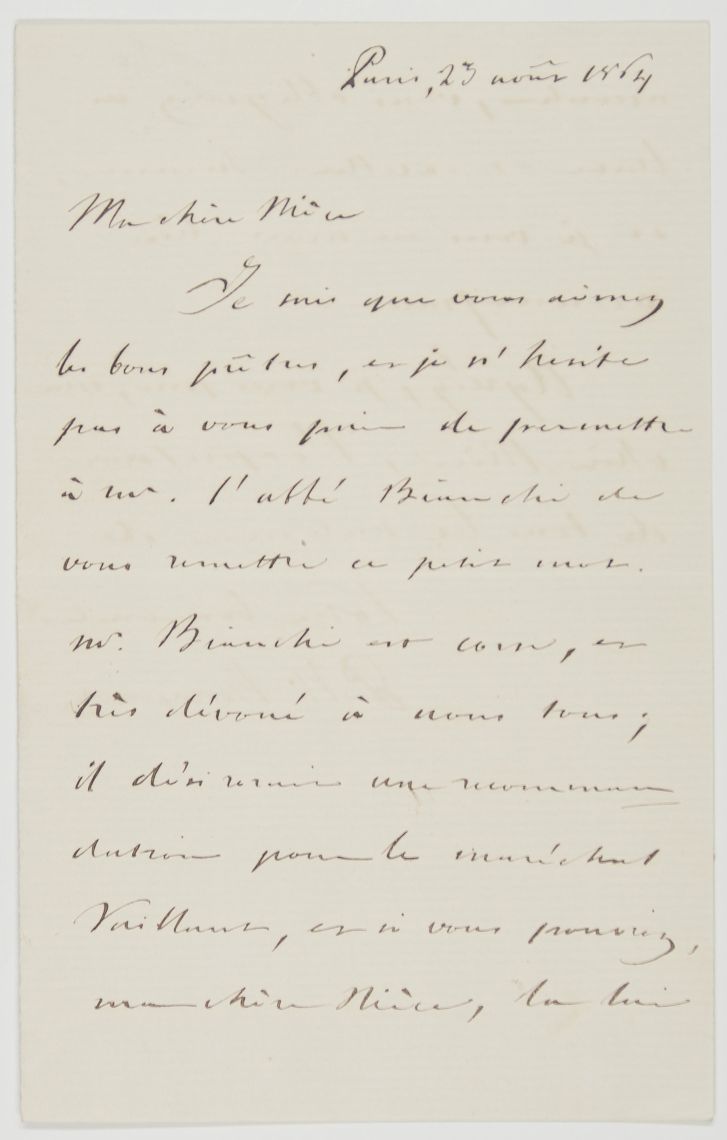 Paris, 23 août 1864
Ma chère Nièce
Je sais que vous aimez
les bons prêtres, et je n'hesite
pas à vous prier de permettre
à mr. l'abbé Bianchi de
vous remettre ce petit mot.
mr. Bianchi est corse, et
très dévoué à nous tous;
il désirerait une recomman
dation pour le maréchal
Vaillant, et si vous pouviez,
ma chère Nièce, la lui